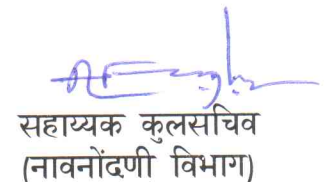 सहाय्यक कुलसचिव
(नावनोंदणी विभाग)